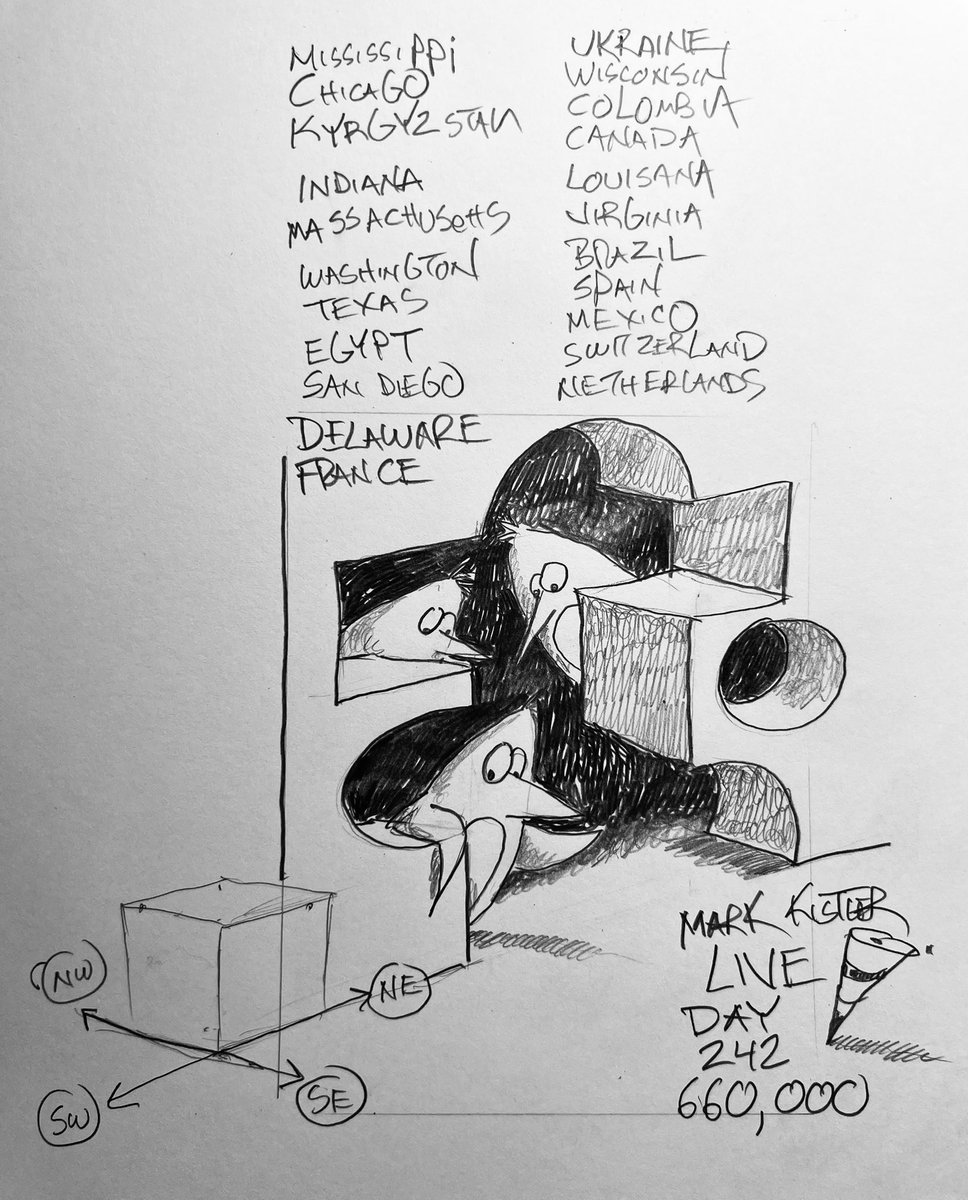 MISSISSIPPI
CHICAGO
KYRGYZSTAN
INDIANA
MASSACHUSETTS
WASHINGTON
TEXAS
EGYPT
SAN DIEGO
DELAWARE
FRANCE
UKRAINE
WISCONSIN
COLOMBIA
CANADA
LOUISANA
VIRGINIA
BRAZIL
SPAIN
MEXICO
SWITZERLAND
NETHERLANDS
NW
NE
SW
SE
MARK KISTLER
LIVE
DAY
242
660,000